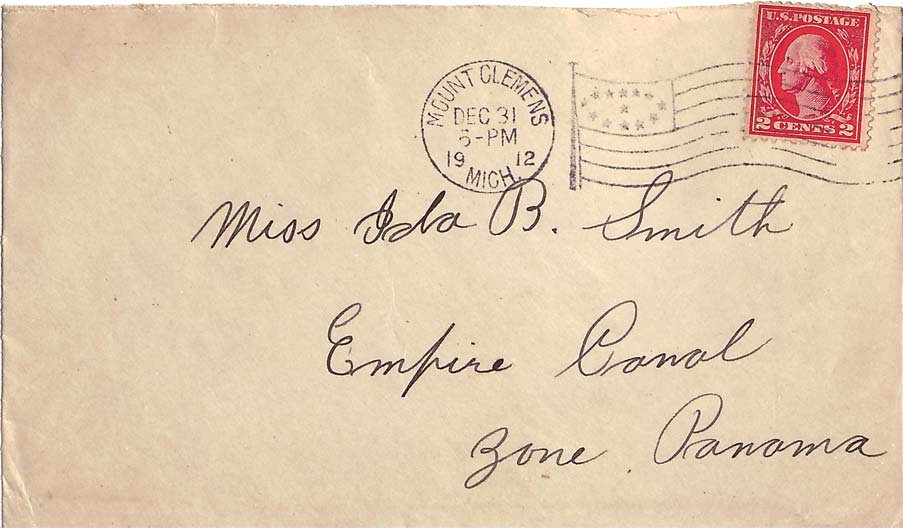 U.S. POSTAGE
2 CENTS 2
MOUNT CLEMENS
DEC 31
5-PM
19 12
MICH.
Miss Ida B. Smith
Empire Canal
Zone Panama